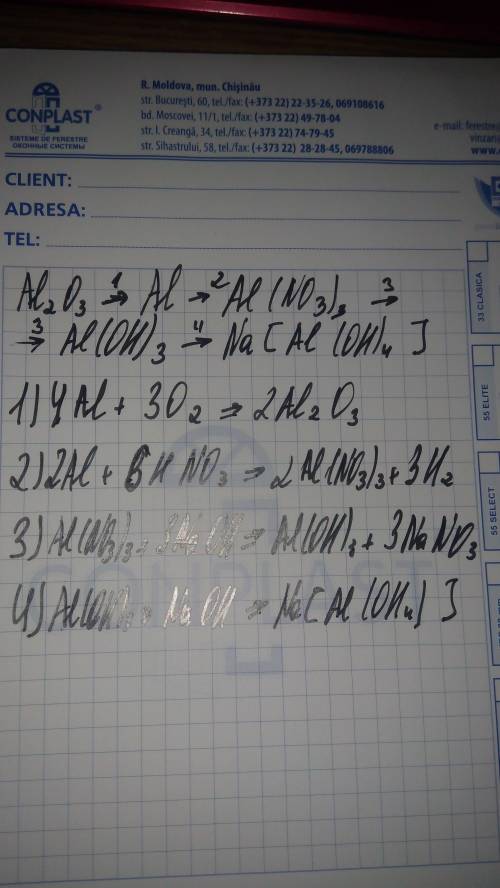 CONPLAST®
SISTEME DE FERESTRE
ОКОННЫЕ СИСТЕМЫ
R. Moldova, mun. Chișinău
str. București, 60, tel./fax: (+373 22) 22-35-26, 069108616
bd. Moscovei, 11/1, tel./fax: (+373 22) 49-78-04
str. I. Creangă, 34, tel./fax: (+373 22) 74-79-45
str. Sihastrului, 58, tel./fax: (+373 22) 28-28-45, 069788806
e-mail:
www.
CLIENT:
ADRESA:
TEL:
33 CLASICA
55 ELITE
55 SELECT
CONPLAST
Al₂O₃ →¹ Al →² Al(NO₃)₃ →³
→³ Al(OH)₃ →⁴ Na[Al(OH)₄]
1) 4Al + 3O₂ ⇒ 2Al₂O₃
2) 2Al + 6HNO₃ ⇒ 2Al(NO₃)₃ + 3H₂
3) Al(NO₃)₃ + 3NaOH ⇒ Al(OH)₃ + 3NaNO₃
4) Al(OH)₃ + NaOH ⇒ Na[Al(OH₄)]